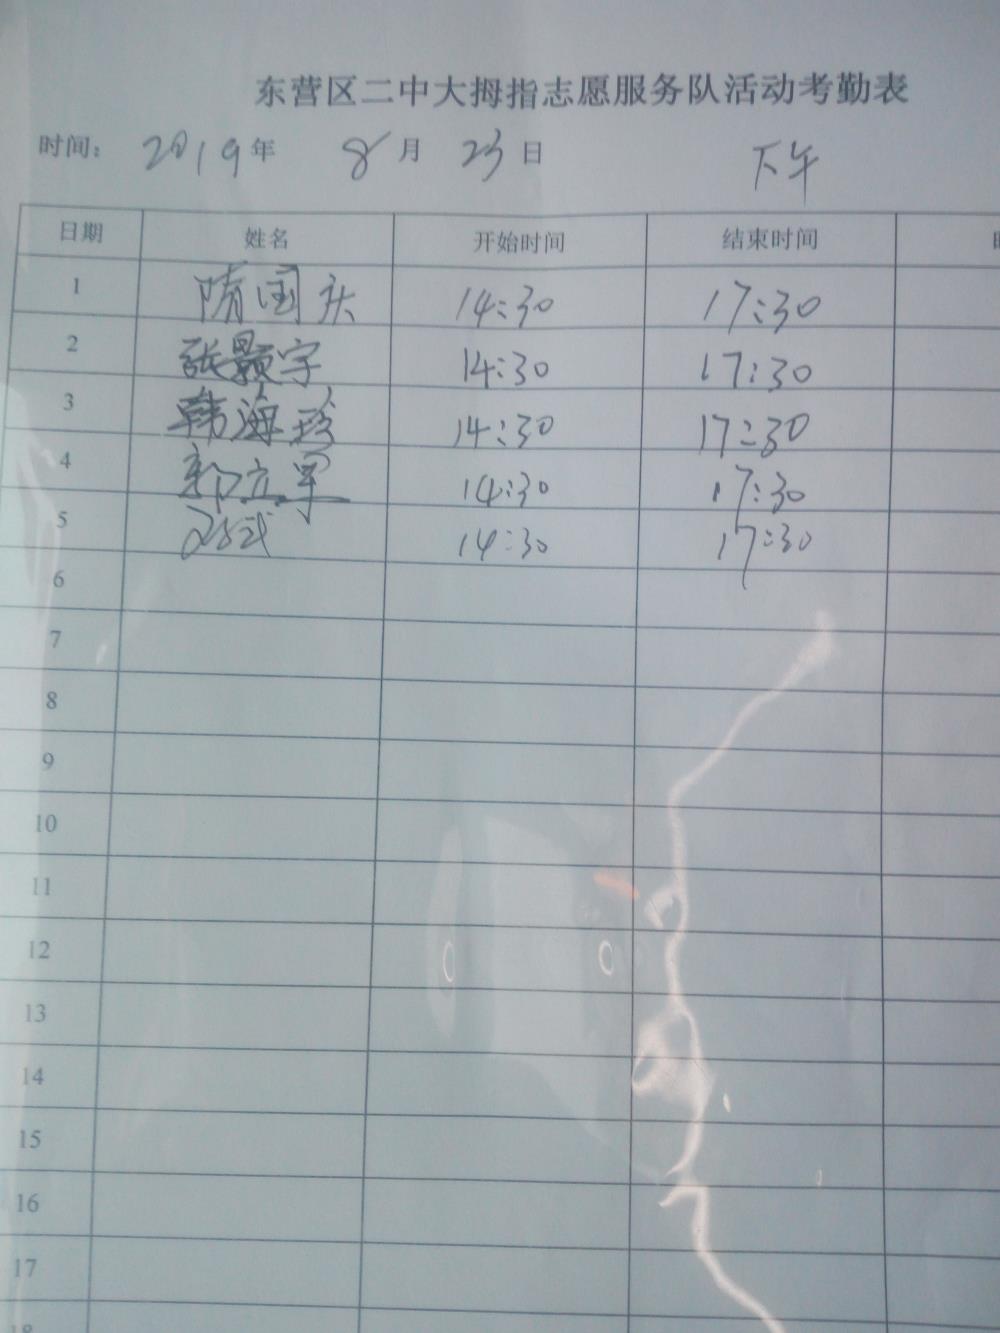 东营区二中大拇指志愿服务队活动考勤表
时间: 2019年 8月 23日 下午
日期 姓名 开始时间 结束时间
1 隋国庆 14:30 17:30
2 张颢宇 14:30 17:30
3 韩海珍 14:30 17:30
4 郭立军 14:30 17:30
5 14:30 17:30
6
7
8
9
10
11
12
13
14
15
16
17
18